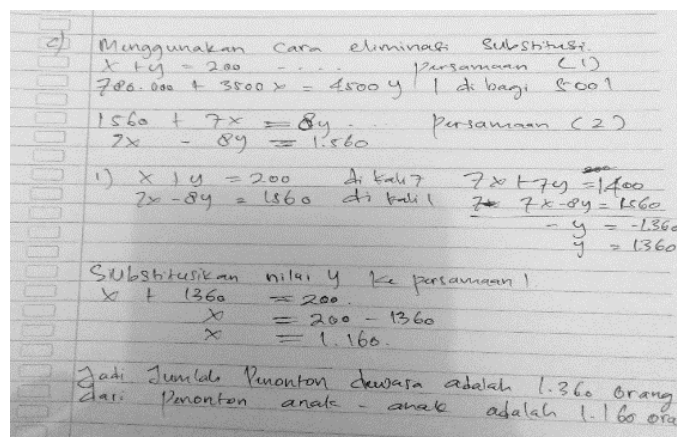 c) Menggunakan cara eliminasi substitusi.
x + y = 200 - . . . . persamaan (1)
780.000 + 3500 x = 4500 y | di bagi 500 |
1560 + 7x = 8y . . . persamaan (2)
7x - 8y = 1.560
1) x + y = 200 di kali 7 7x + 7y = 1400
7x - 8y = 1560 di kali 1 7x - 8y = 1560
- y = -1360
y = 1360
Substitusikan nilai y ke persamaan 1
x + 1360 = 200.
x = 200 - 1360
x = 1.160.
Jadi Jumlah Penonton dewasa adalah 1.360 orang
dari Penonton anak - anak adalah 1.160 ora